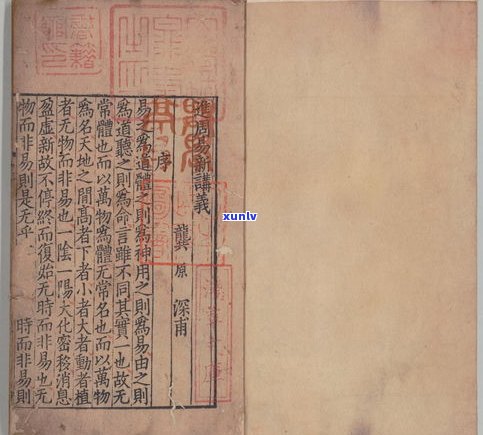 進周易新講義
龔原 深甫
序
易之爲道體之則爲神用之則爲易由之則
爲道聽之則爲命言雖不同其實一也故无
常體也而以萬物爲體无常名也而以萬物
爲名天地之閒高者下者小者大者動者植
者无物而非易也一陰一陽天化密移消息
盈虛新故不停終而復始无時而非易也无
物而非易則是无乎 時而非易則
xunlv